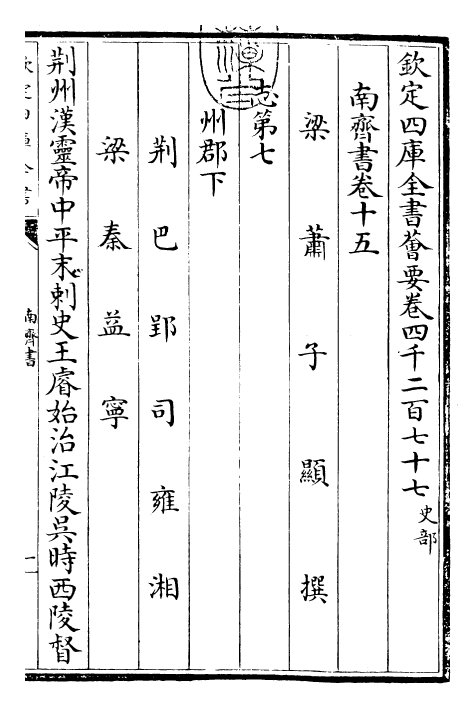 欽定四庫全書薈要卷四千二百七十七 史部
南齊書卷十五
梁 蕭 子 顯 撰
志第七
州郡下
荆 巴 郢 司 雍 湘
梁 秦 益 寧
荆州漢靈帝中平末刺史王睿始治江陵吳時西陵督
欽定四庫全書
南齊書
一